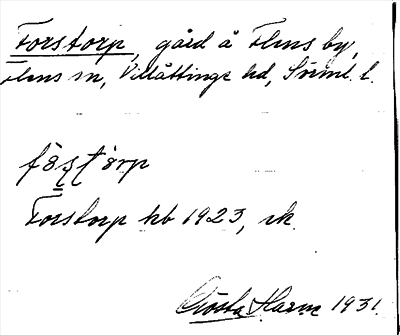 Forstorp, gård å Flens by,
Flens sn, Villåttinge hd, Sörml. l.
fåʂʈårp
Forstorp kb 1923, rk.
Gösta Harm 1931.